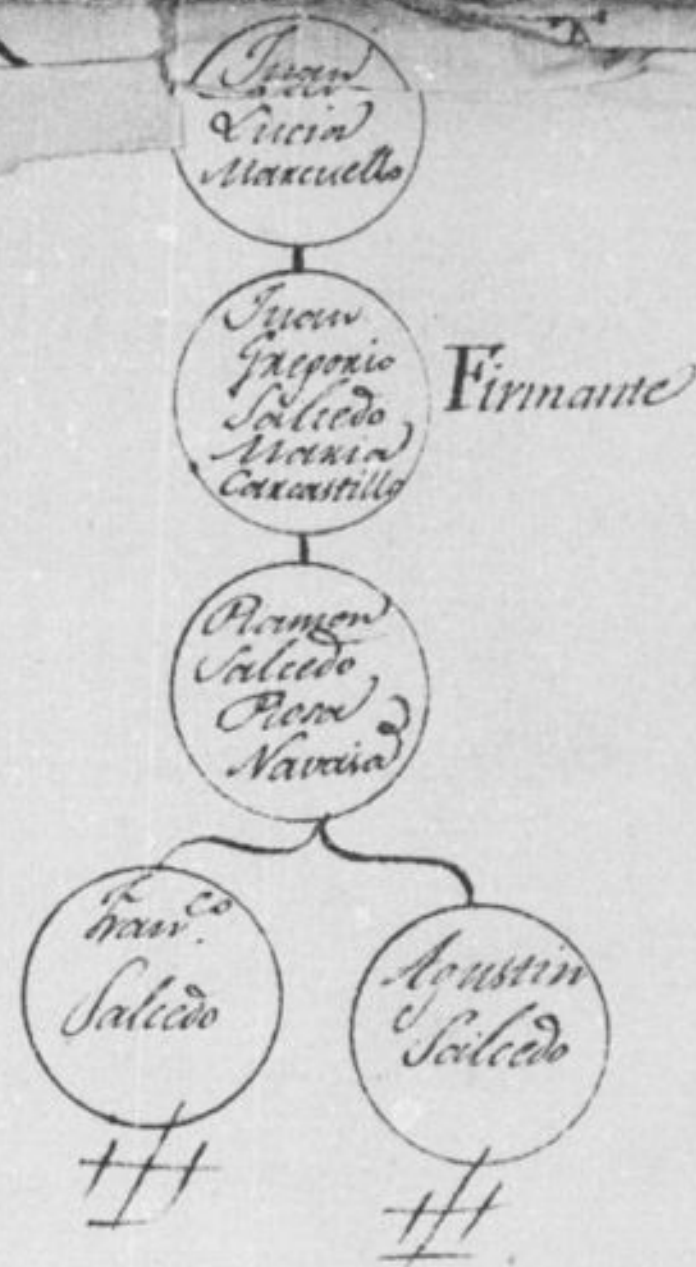 Juan
Lucia
Marcuello
Juan
Gregorio
Salcedo
Maria
Carcastillo
Firmante
Ramon
Salcedo
Rosa
Navaia
Fran.co
Salcedo
Agustin
Salcedo